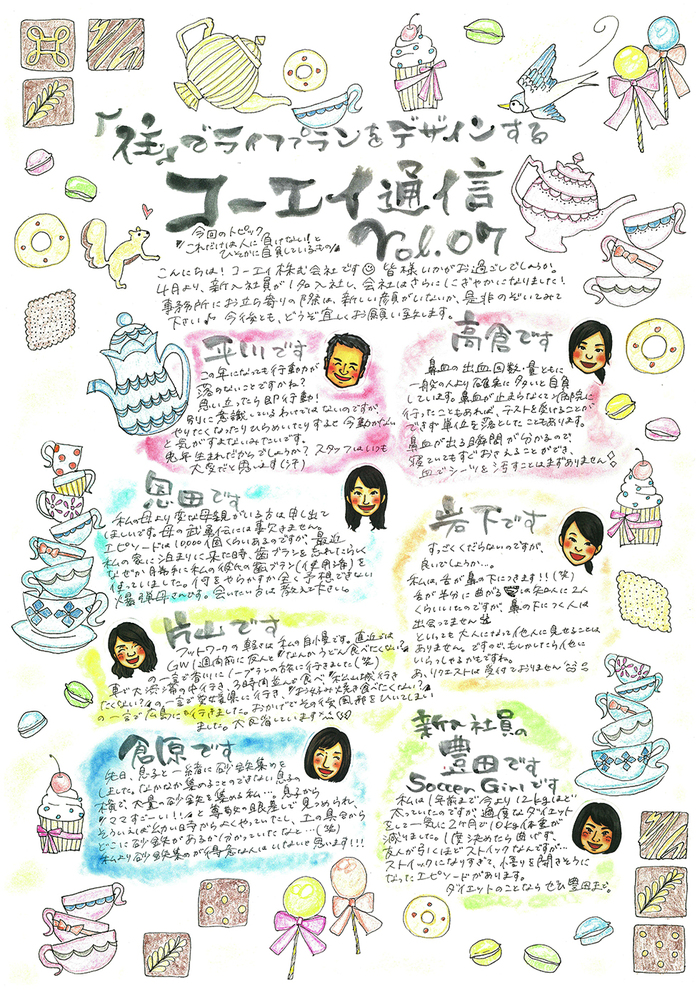 「住」でライフプランをデザインする
コーエイ通信
Vol.07
今回のトピック
"これだけは人に負けない!と
ひそかに自負しているもの"
こんにちは!コーエイ株式会社です☺ 皆様いかがお過ごしでしょうか。
4月より、新入社員が1名入社し、会社はさらににぎやかになりました!
事務所にお立ち寄りの際は、新しい顔がいないか、是非のぞいてみて
下さい♪ 今後とも、どうぞ宜しくお願い致します。
平川です
この年になっても行動力が
落のないことですかね?
思い立ったら即行動!
別に意識しているわけではないのですが、
やりたくなったりひらめいたりすると今動かないと
気がすまないみたいです。
大変だと思います(汗)
高倉です
鼻血の出血回数・量ともに
一般の人より確実に多いと自負
しています。鼻血が止まらなくて病院に
行ったこともあれば、テストを受けることが
できず単位を落としたこともあります。
鼻血が出る瞬間が分かるので、
寝ていてもすぐおさえることができ、
血でシーツを汚すことはまずありません
恩田です
私の母より変な母親がいる方は申し出て
ほしいです。母の武勇伝には事欠きません。
エピソードは10000個くらいあるのですが、最近
私の家に泊まりに来た時、歯ブラシを忘れたらしく
なぜか勝手に私の彼氏の歯ブラシ(使用済)を
使っていました。何をやらかすか全く予想できない
爆弾母さんです。会いたい方は教えて下さい。
岩下です
すっごくくだらないのですが、
良いでしょうか…。
私は、舌が鼻の下につきます!!(笑)
舌が半分に曲がる
くらいいたのですが、鼻の下につく人は
出会ってません
といっても大人になって他人に見せることは
ありません。ですので、もしかしたら他に
いらっしゃるかもですね。
あ、リクエストは受付ておりません
片山です
フットワークの軽さは私の自慢です。直近では
GW1週間前に友人と"なんかうどん食べたくない?"
の一言で香川にノープランの旅に行きました(笑)
の一言で広島にも行きました。おかげでその後風邪をひいてしまい
ました。
倉原です
先日、息子と一緒に砂鉄集めを
しました。なかなか集めることのできない息子の
横で、大量の砂鉄を集める私…。息子から
"ママすごーい!!"と尊敬の眼差しで見つめられ、
そういえば幼い時からよくやっていたし、土の具合から
どこに砂鉄があるか分かっていたなと…(笑)
私より砂鉄集めが得意な人はいないと思います!!!
新入社員の
豊田です
Soccer Girlです
私は1年前まで今より12kgほど
太っていたのですが過度なダイエット
をして一気に2ケ月で10kg体重が
減りました。1度決めたら曲げず、
友人が引くほどストイックなんですが…
ストイックになりすぎて、悟りを開きそうに
なったエピソードがあります。
ダイエットのことなら ぜひ豊田まで。